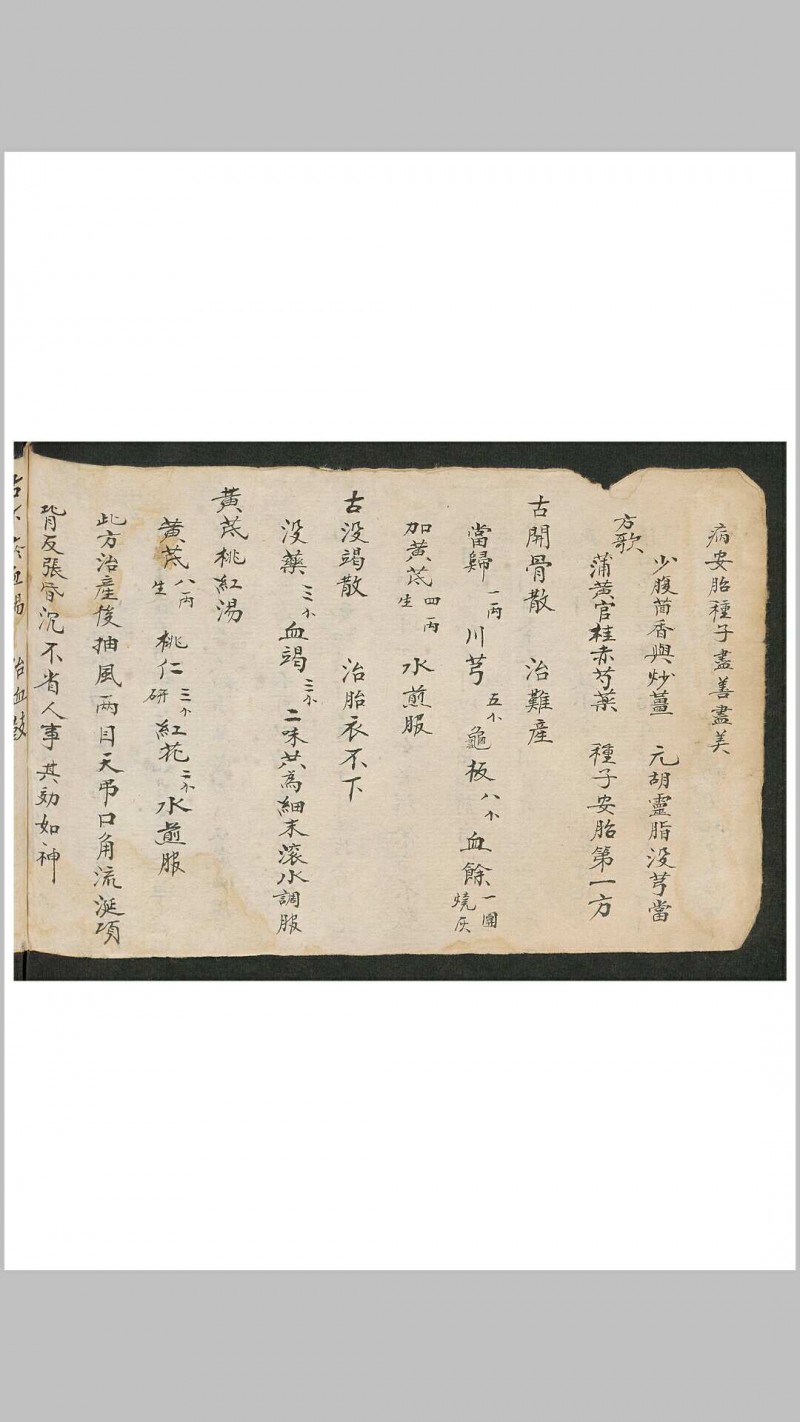 病安胎種子盡善盡美
少腹茴香與炒薑 元胡靈脂没芎當
方歌
蒲黃官桂赤芍藥 種子安胎第一方
古開骨散 治難産
當歸一两 川芎五个 龜板八个 血餘一團燒灰
加黃茋生四两 水煎服
古没竭散 治胎衣不下
没藥三个 血竭三个 二味共為細末滚水調服
黃茋桃紅湯
黃茋生八两 桃仁研三个 紅花二个 水煎服
此方治産後抽風两目天弔口角流涎項
背反張昏沉不省人事其効如神